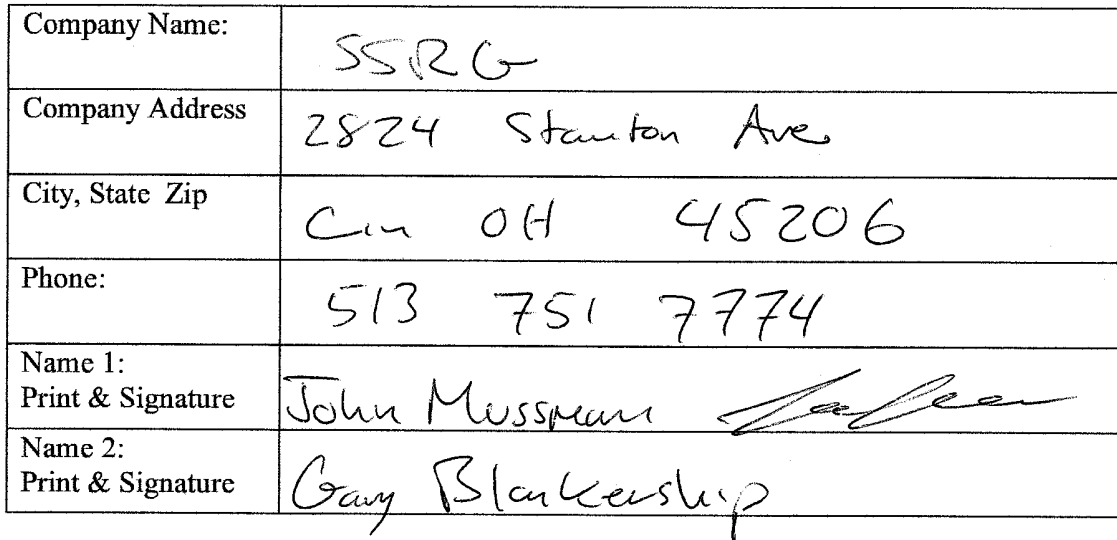 Company Name: SSRG
Company Address 2824 Stanton Ave
City, State Zip Cin OH 45206
Phone: 513 751 7774
Name 1:
Print & Signature John Mussman
Name 2:
Print & Signature Gary Blankenship